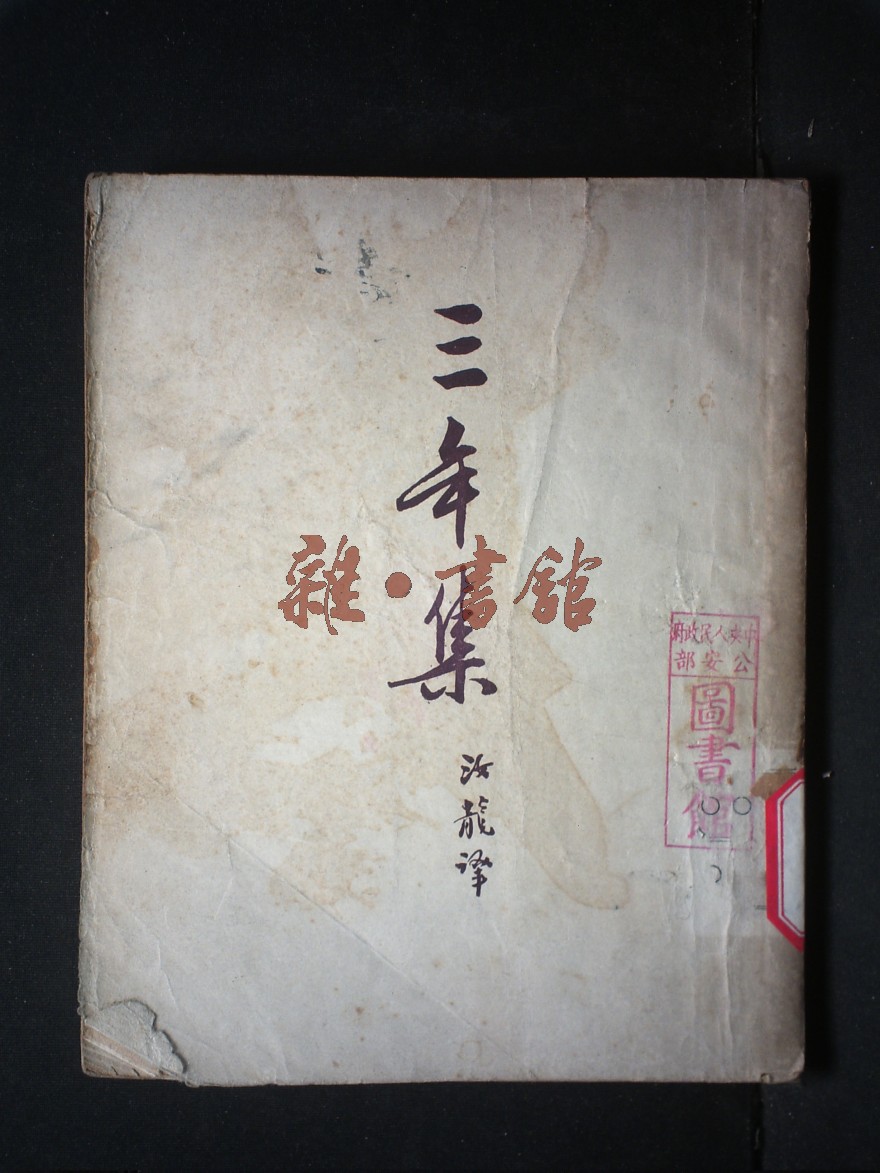 三年集
汝龍譯
雜·書館
中央人民政府
公安部
圖書館